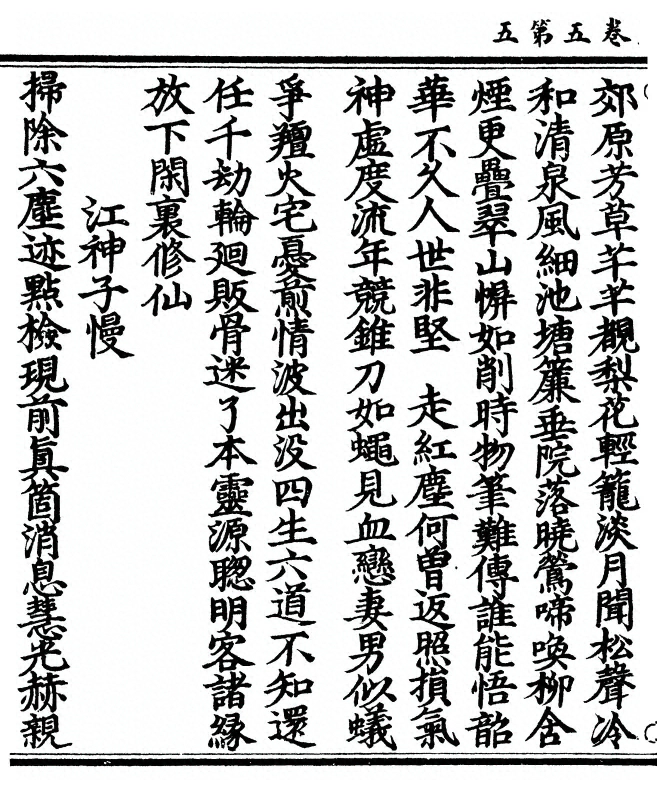 卷五第五
郊原芳草芊芊覩梨花輕籠淡月聞松聲冷
和清泉風細池塘簾垂院落曉鶯啼喚柳含
煙更疊翠山㠗如削時物筆難傳誰能悟韶
華不久人世非堅　走紅塵何曾返照損氣
神虛度流年競錐刀如蠅見血戀妻男似蟻
爭羶火宅憂煎情波出沒四生六道不知還
任千劫輪廻販骨迷了本靈源聰明客諸緣
放下閑裏修仙
江神子慢
掃除六塵迹點檢現前眞箇消息慧光赫親